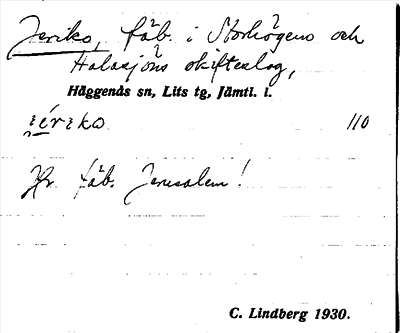 Jeriko, fäb. i Storhögens och
Halasjöns skifteslag,
Häggenås sn, Lits tg, Jämtl. l.
110
Jfr fäb. Jerusalem!
C. Lindberg 1930.